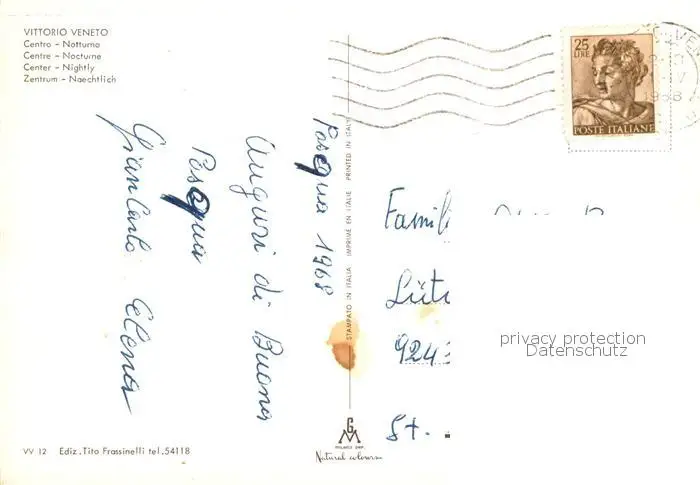 VITTORIO VENETO
Centro - Notturno
Centre - Nocturne
Center - Nightly
Zentrum - Naechtlich
25
LIRE
POSTE ITALIANE
1968
Pasqua 1968
Auguri di Buona
Pasqua
Giancarlo Elena
STAMPATO IN ITALIA IMPRIMÉ EN ITALIE PRINTED IN ITALY
Famil
Lüt
924
St.
privacy protection
Datenschutz
GM
Natural colours
VV 12 Ediz. Tito Frassinelli tel. 54118